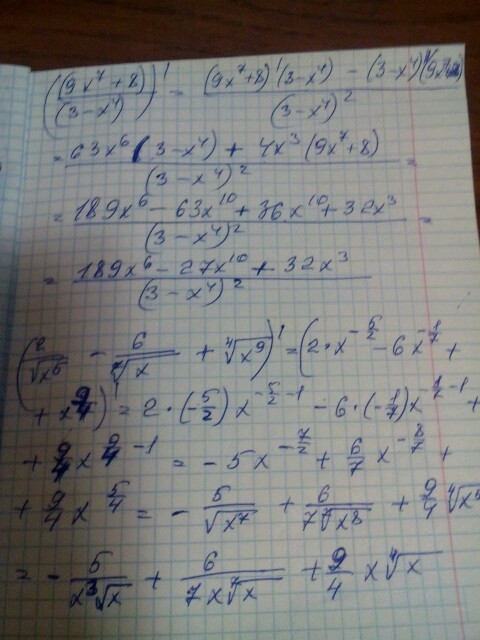 ((9x⁷+8)/(3-x⁴))' = ((9x⁷+8)'(3-x⁴) - (3-x⁴)'(9x⁷+8))/(3-x⁴)² =
= (63x⁶(3-x⁴) + 4x³(9x⁷+8))/(3-x⁴)² =
= (189x⁶ - 63x¹⁰ + 36x¹⁰ + 32x³)/(3-x⁴)² =
= (189x⁶ - 27x¹⁰ + 32x³)/(3-x⁴)²
(2/√x⁵ - 6/⁷√x + ⁴√x⁹)' = (2·x^(-5/2) - 6x^(-1/7) +
+ x^(9/4))' = 2·(-5/2)x^(-5/2-1) - 6·(-1/7)x^(-1/7-1) +
+ 9/4 x^(9/4-1) = -5x^(-7/2) + 6/7 x^(-8/7) +
+ 9/4 x^(5/4) = -5/√x⁷ + 6/(7⁷√x⁸) + 9/4 ⁴√x⁵
= -5/(x³√x) + 6/(7x⁷√x) + 9/4 x⁴√x